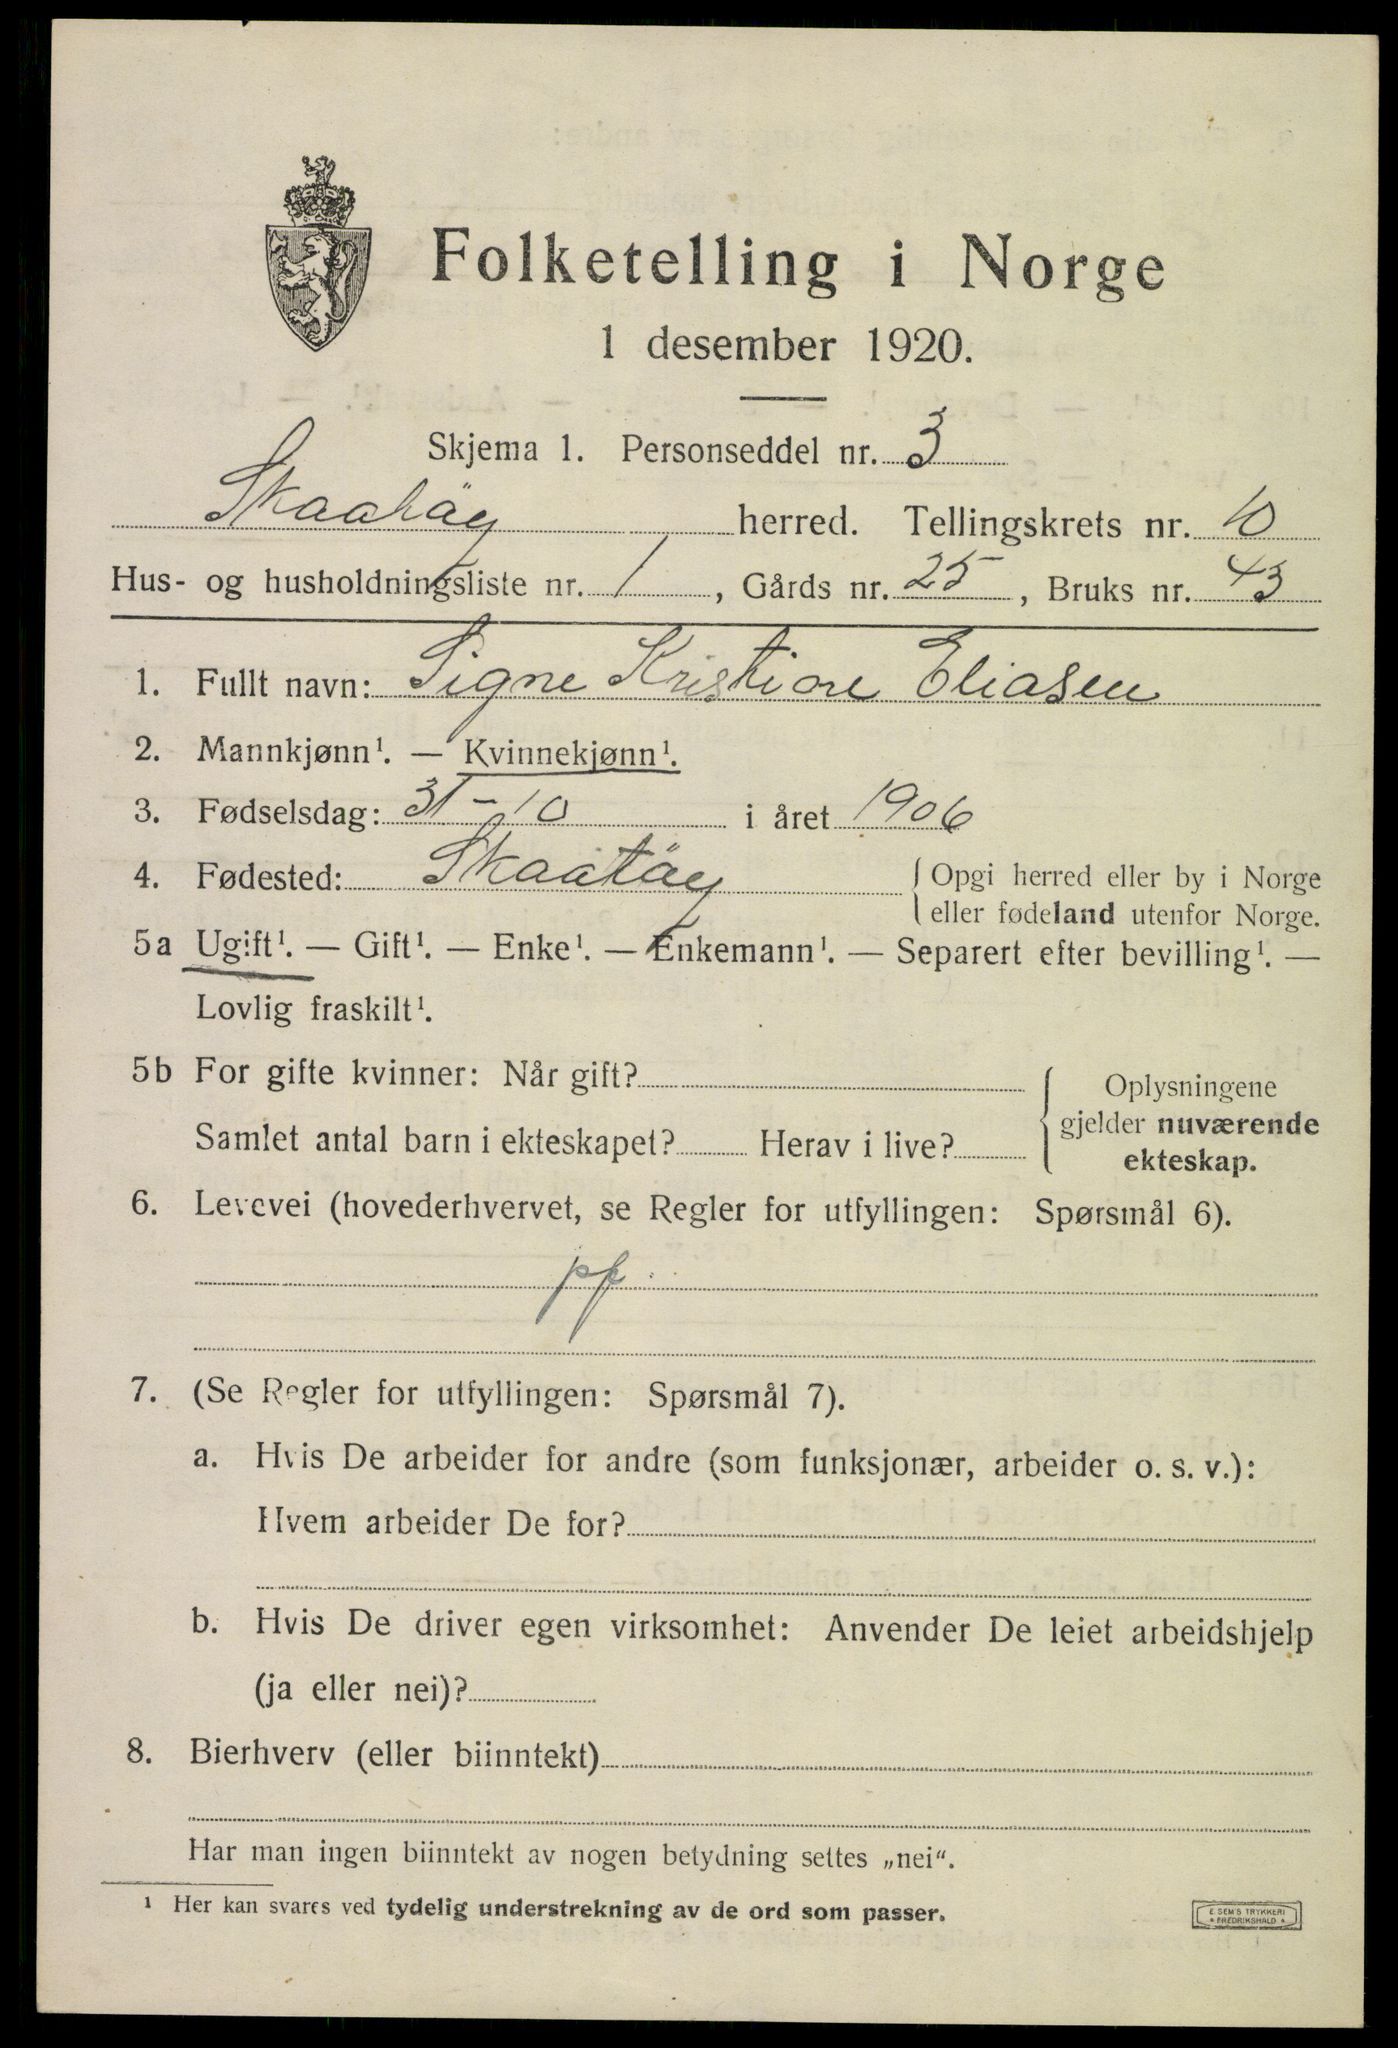 Folketelling i Norge
1 desember 1920.
Skjema 1. Personseddel nr. 3
Skaatöy herred. Tellingskrets nr. 10
Hus- og husholdningsliste nr. 1, Gårds nr. 25, Bruks nr. 43
1. Fullt navn: Signe Kristine Eliasen
2. Mannkjønn¹. — Kvinnekjønn¹.
3. Fødselsdag: 31-10 i året 1906
4. Fødested: Skaatöy { Opgi herred eller by i Norge
eller fødeland utenfor Norge.
5a Ugift¹. — Gift¹. — Enke¹. — Enkemann¹. — Separert efter bevilling¹. —
Lovlig fraskilt¹.
5b For gifte kvinner: Når gift?
Samlet antal barn i ekteskapet? Herav i live?
Oplysningene
gjelder nuværende
ekteskap.
6. Levevei (hovederhvervet, se Regler for utfyllingen: Spørsmål 6).
pf
7. (Se Regler for utfyllingen: Spørsmål 7).
a. Hvis De arbeider for andre (som funksjonær, arbeider o. s. v.):
Hvem arbeider De for?
b. Hvis De driver egen virksomhet: Anvender De leiet arbeidshjelp
(ja eller nei)?
8. Bierhverv (eller biinntekt)
Har man ingen biinntekt av nogen betydning settes „nei“.
¹ Her kan svares ved tydelig understrekning av de ord som passer.
E. SEM'S TRYKKERI
* FREDRIKSHALD *